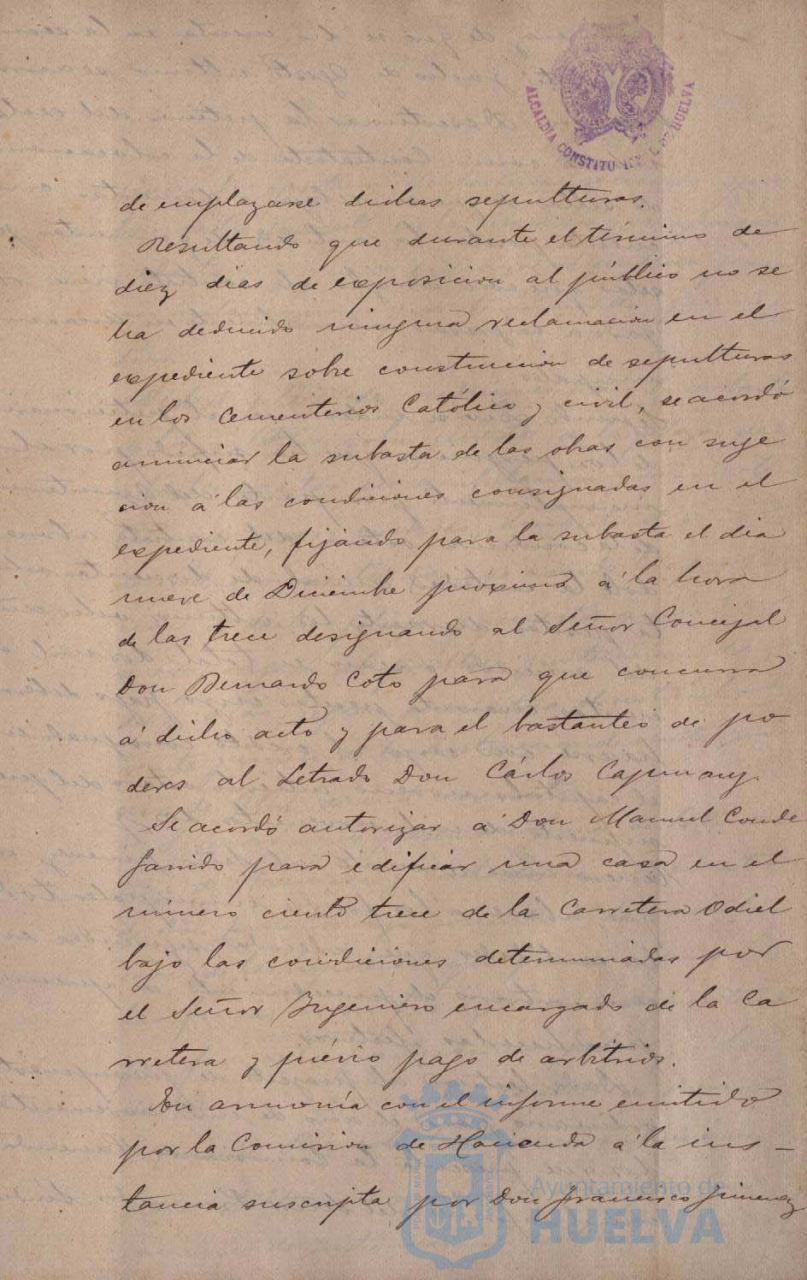 ALCALDIA CONSTITUCIONAL DE HUELVA
de emplazarse dichas sepulturas.
Resultando que durante el término de
diez dias de exposicion al público no se
ha deducido ninguna reclamacion en el
expediente sobre construccion de sepulturas
en los Cementerios Católico y civil, se acordó
anunciar la subasta de las obras con suje
cion á las condiciones consignadas en el
expediente, fijando para la subasta el dia
nueve de Diciembre próximo á la hora
de las trece designando al Señor Concejal
Don Bernardo Coto para que concurra
á dicho acto y para el bastanteo de po
deres al Letrado Don Cárlos Capmany.
Se acordó autorizar á Don Manuel Conde
Garrido para edificar una casa en el
número ciento trece de la Carretera Odiel
bajo las condiciones determinadas por
el Señor Ingeniero encargado de la Ca
rretera y prévio pago de arbitrios.
En armonía con el informe emitido
por la Comision de Hacienda á la ins-
tancia suscripta por Don Francisco Jimenez
Ayuntamiento de
HUELVA